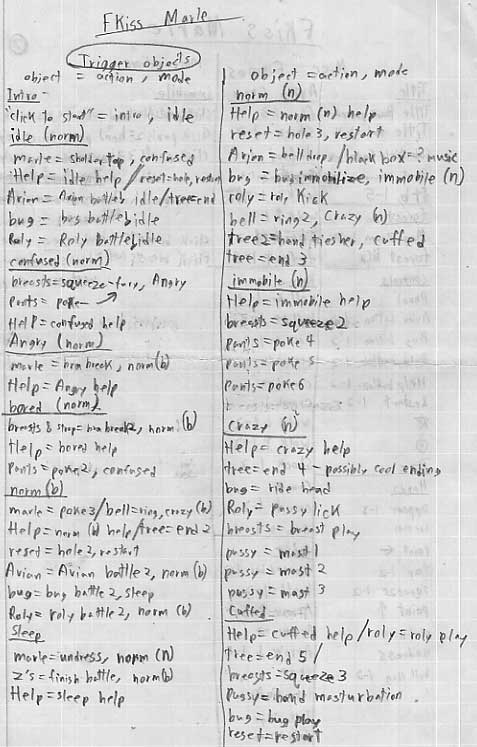 FKiss Marle
Trigger objects
object = action, mode
Intro -
"click to start" = intro, idle
idle (norm)
marle = sholder top, confused
Help = idle help / reset = hole, restart
Avian = Avian battle, idle / tree = end
bug = bug battle, idle
Roly = Roly battle, idle
confused (norm)
breasts = squeeze - fury, Angry
Pants = poke
Help = confused help
Angry (norm)
marle = bra break, norm (b)
Help = Angry help
bored (norm)
breasts & strap = bra break 2, norm (b)
Help = bored help
Pants = poke 2, confused
norm (b)
marle = poke 3 / bell = ring, crazy (b)
Help = norm (b) help / tree = end 2
reset = hole 2, restart
Avian = Avian battle 2, norm (b)
bug = bug battle 2, sleep
Roly = roly battle 2, norm (b)
Sleep
marle = undress, norm (n)
Z's = finish battle, norm (b)
Help = sleep help
object = action, mode
norm (n)
Help = norm (n) help
reset = hole 3, restart
Avian = bell drop / black box = ? music
bug = bug immobilize, immobile (n)
roly = roly Kick
bell = ring 2, Crazy (n)
tree 2 = hand tiesher, cuffed
tree = end 3
immobile (n)
Help = immobile help
breasts = squeeze 2
pants = poke 4
pants = poke 5
pants = poke 6
Crazy (n)
Help = crazy help
tree = end 4 - possibly cool ending
bug = ride head
Roly = pussy lick
breasts = breast play
pussy = mast 1
pussy = mast 2
pussy = mast 3
Cuffed
Help = cuffed help / roly = roly play
tree = end 5 /
breasts = squeeze 3
Pussy = hand masturbation
bug = bug play
reset = restart